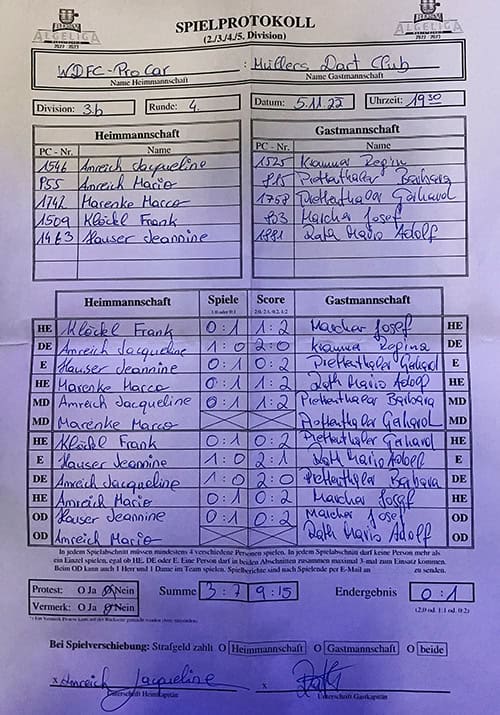 ALGELIGA
2022 / 2023
ALGELIGA
2022 / 2023
SPIELPROTOKOLL
(2./3./4./5. Division)
WDFC-ProCar : Müllers Dart Club
Name Heimmannschaft Name Gastmannschaft
Division: 3.b Runde: 4. Datum: 5.11.22 Uhrzeit: 19 30
Heimmannschaft Gastmannschaft
PC - Nr. Name PC - Nr. Name
1546 Amreich Jacqueline 1525 Krammer Regina
955 Amreich Mario 815 Prettenthaler Barbara
1742 Marenke Marco 1758 Prettenthaler Gerhard
1509 Klöckl Frank 803 Marcher Josef
1463 Hauser Jeannine 1881 Rath Mario Adolf
Heimmannschaft Spiele Score Gastmannschaft
1:0 oder 0:1 2:0, 2:1, 0:2, 1:2
HE Klöckl Frank 0:1 1:2 Marcher Josef HE
DE Amreich Jacqueline 1:0 2:0 Krammer Regina DE
E Hauser Jeannine 0:1 0:2 Prettenthaler Gerhard E
HE Marenke Marco 0:1 1:2 Rath Mario Adolf HE
MD Amreich Jacqueline 0:1 1:2 Prettenthaler Barbara MD
MD Marenke Marco Prettenthaler Gerhard MD
HE Klöckl Frank 0:1 0:2 Prettenthaler Gerhard HE
E Hauser Jeannine 1:0 2:1 Rath Mario Adolf E
DE Amreich Jacqueline 1:0 2:0 Prettenthaler Barbara DE
HE Amreich Mario 0:1 0:2 Marcher Josef HE
OD Hauser Jeannine 0:1 0:2 Marcher Josef OD
OD Amreich Mario Rath Mario Adolf OD
In jedem Spielabschnitt müssen mindestens 4 verschiedene Personen spielen. In jedem Spielabschnitt darf keine Person mehr als
ein Einzel spielen, egal ob HE, DE oder E. Eine Person darf in beiden Abschnitten zusammen maximal 3-mal zum Einsatz kommen.
Beim OD kann auch 1 Herr und 1 Dame im Team spielen. Spielberichte sind nach Spielende per E-Mail an zu senden.
Protest: O Ja O Nein Summe 3:7 9:15 Endergebnis 0:1
Vermerk: O Ja O Nein (2:0 od. 1:1 od. 0:2)
Bei Spielverschiebung: Strafgeld zahlt O Heimmannschaft O Gastmannschaft O beide
x Amreich Jacqueline x Rath
Unterschrift Heimkapitän Unterschrift Gastkapitän